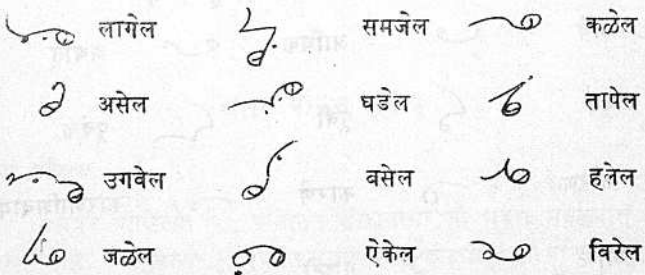 लागेल समजेल कळेल
असेल घडेल तापेल
उगवेल बसेल हलेल
जळेल ऐकेल विरेल